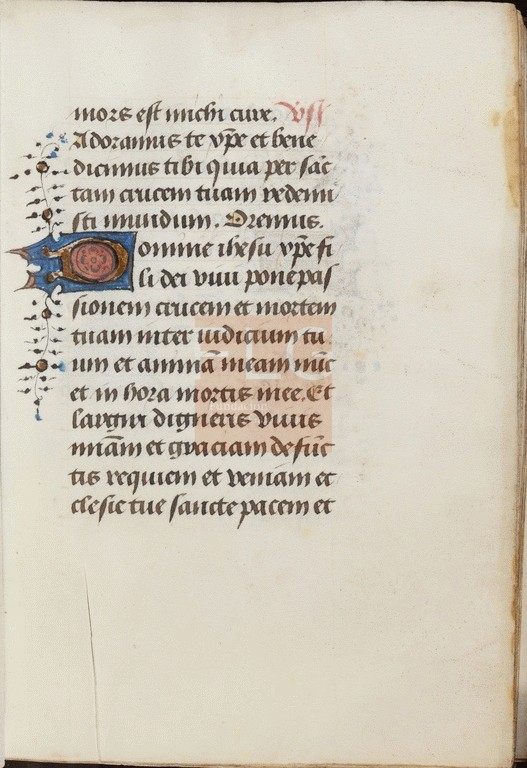 mors est michi cure. v̄s
Adoramus te xp̄e et bene
dicimus tibi quia per sāc
tam crucem tuam redemi
sti mundum. Oremus.
Domine ihesu xp̄e fi
li dei viui pone pas
sionem crucem et mortem
tuam inter iudicium tu
um et animā meam nūc
et in hora mortis mee. Et
largiri digneris viuis
miām et graciam defūc
tis requiem et veniam ec
clesie tue sancte pacem et